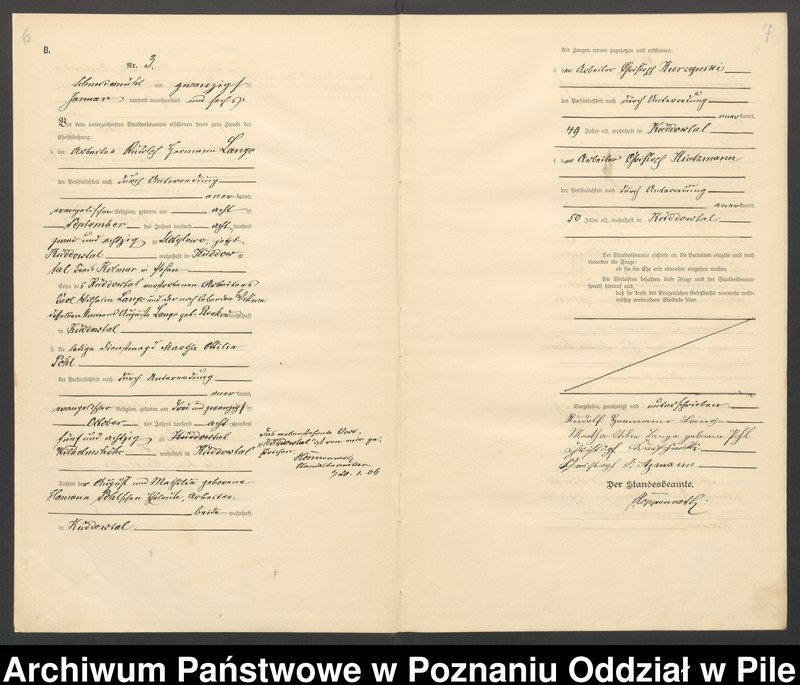 6
B.
Nr. 3.
Schneidemühl am zwanzigsten
Januar tausend neunhundert und sechs.
Vor dem unterzeichneten Standesbeamten erschienen heute zum Zwecke der
Eheschließung:
1. der Arbeiter Rudolf Hermann Lange
der Persönlichkeit nach durch Unterredung
anerkannt,
evangelischer Religion, geboren am acht
September des Jahres tausend acht hundert
zwei und achtzig zu jetzt
Küddowtal wohnhaft in Küddow-
tal Kreis Kolmar in Posen
Sohn des Küddowtal verstorbenen Arbeiters
Carl Wilhelm Lange und der noch lebenden Witwe
desselben Auguste Lange geb. wohnhaft
in Küddowtal
2. die ledige Dienstmagd Martha Ottilie
Pohl
der Persönlichkeit nach durch Unterredung
anerkannt,
evangelischer Religion, geboren am drei und zwanzigsten
Oktober des Jahres tausend acht hundert
fünf und achtzig zu Küddowtal
Wilhelmshöhe wohnhaft in Küddowtal
Das nebenstehende Wort
"Küddowtal" ist von mir ge-
strichen.
Standesbeamter.
20. 1. 06
Tochter der August und Mathilde geborene
Pohlschen Eheleute, Arbeiter,
beide wohnhaft
in Küddowtal
7
Als Zeugen waren zugezogen und erschienen:
3. der Arbeiter Christoph Kurzynski
der Persönlichkeit nach durch Unterredung
anerkannt,
49 Jahre alt, wohnhaft in Küddowtal
4. der Arbeiter Christoph
der Persönlichkeit nach durch Unterredung
anerkannt,
50 Jahre alt, wohnhaft in Küddowtal
Der Standesbeamte richtete an die Verlobten einzeln und nach
einander die Frage:
ob sie die Ehe mit einander eingehen wollen.
Die Verlobten bejahten diese Frage und der Standesbeamte
sprach hierauf aus,
daß sie kraft des Bürgerlichen Gesetzbuchs nunmehr recht-
mäßig verbundene Eheleute seien.
Vorgelesen, genehmigt und unterschrieben
Rudolf Hermann Lange
Martha Lange geborene Pohl
Christoph
Christoph
Der Standesbeamte.
Archiwum Państwowe w Poznaniu Oddział w Pile